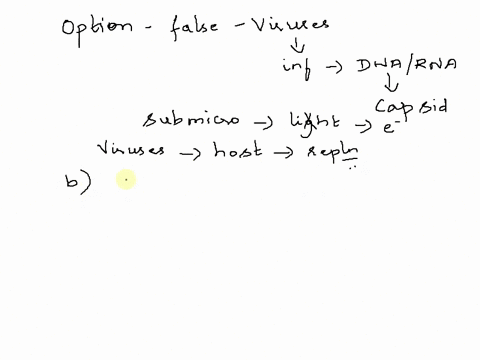 Option - false - Viruses
↓
inf → DNA/RNA
↓
Capsid
submicro → light → e⁻
Viruses → host → repln
b)